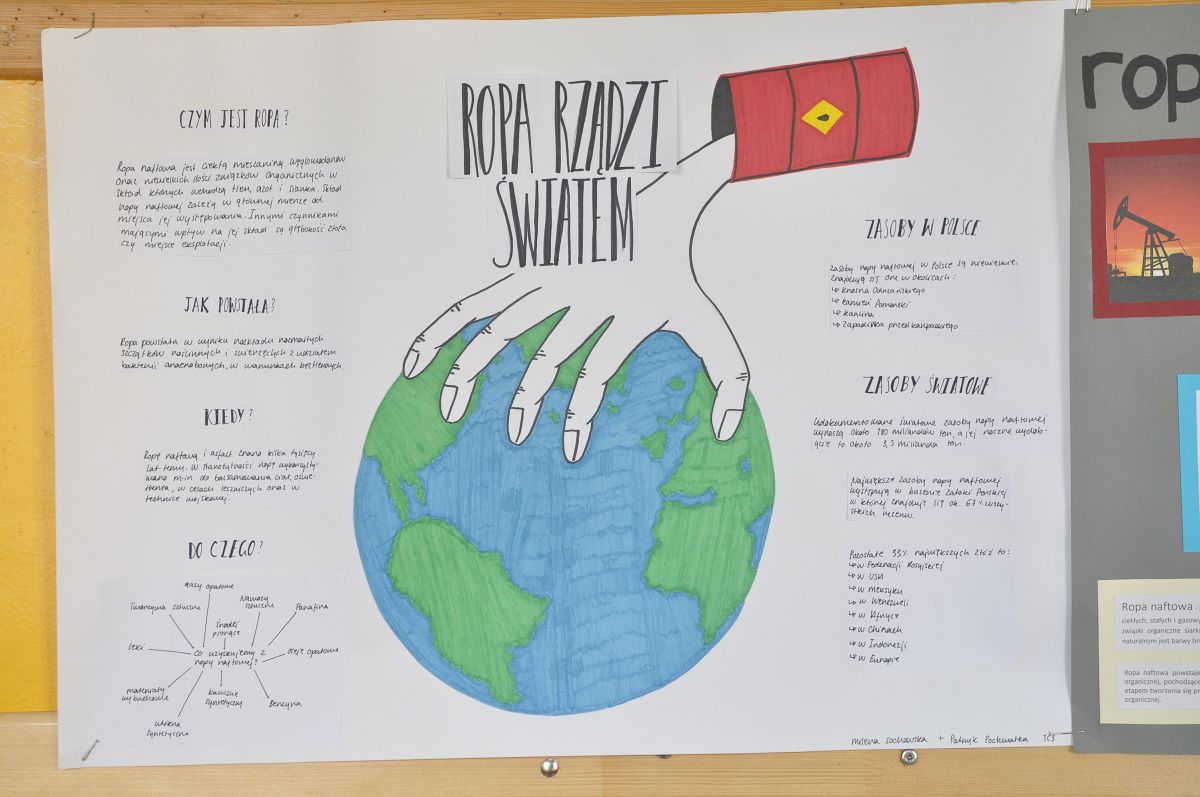 ROPA RZĄDZI
ŚWIATEM
CZYM JEST ROPA?
Ropa naftowa jest ciekłą mieszaniną węglowodorów
oraz niewielkich ilości związków organicznych w
skład których wchodzą tlen, azot i siarka. Skład
ropy naftowej zależy w głównej mierze od
miejsca jej występowania. Innymi czynnikami
mającymi wpływ na jej skład są głębokość złoża
czy miejsce eksploatacji.
JAK POWSTAŁA?
Ropa powstała w wyniku rozkładu rozmaitych
szczątków roślinnych i zwierzęcych z udziałem
bakterii anaerobowych, w warunkach beztlenowych.
KIEDY?
Ropę naftową i asfalt znano kilka tysięcy
lat temu. W starożytności ropę wykorzysty-
wano m.in do balsamowania ciał, oświe-
tlenia, w celach leczniczych oraz w
technice wojskowej.
DO CZEGO?
gazy opałowe
Tworzywa sztuczne
Nawozy
sztuczne
Parafina
Środki
piorące
leki
Co uzyskujemy z
ropy naftowej?
oleje opałowe
materiały
wybuchowe
kauczuk
syntetyczny
Benzyna
włókna
syntetyczne
ZASOBY W POLSCE
Zasoby ropy naftowej w Polsce są niewielkie.
Znajdują się one w okolicach:
↳ Krosna Odrzańskiego
↳ Kamień Pomorski
↳ Karlina
↳ Zapadliska przedkarpackiego
ZASOBY ŚWIATOWE
Udokumentowane światowe zasoby ropy naftowej
wynoszą około 180 miliardów ton, a jej roczne wydoby-
cie to około 3,5 miliarda ton.
Największe zasoby ropy naftowej
występują w basenie Zatoki Perskiej
w której znajduje się ok. 67% wszy-
stkich rezerw.
Pozostałe 33% największych złóż to:
↳ w Federacji Rosyjskiej
↳ w USA
↳ w Meksyku
↳ w Wenezueli
↳ w Afryce
↳ w Chinach
↳ w Indonezji
↳ w Europie
Milena Sochowska + Patryk Pochwatka
rop
Ropa naftowa -
ciekłych, stałych i gazowy
związki organiczne siark
naturalnym jest barwy br
Ropa naftowa powstaje
organicznej, pochodzące
etapem tworzenia się pr
organicznej.